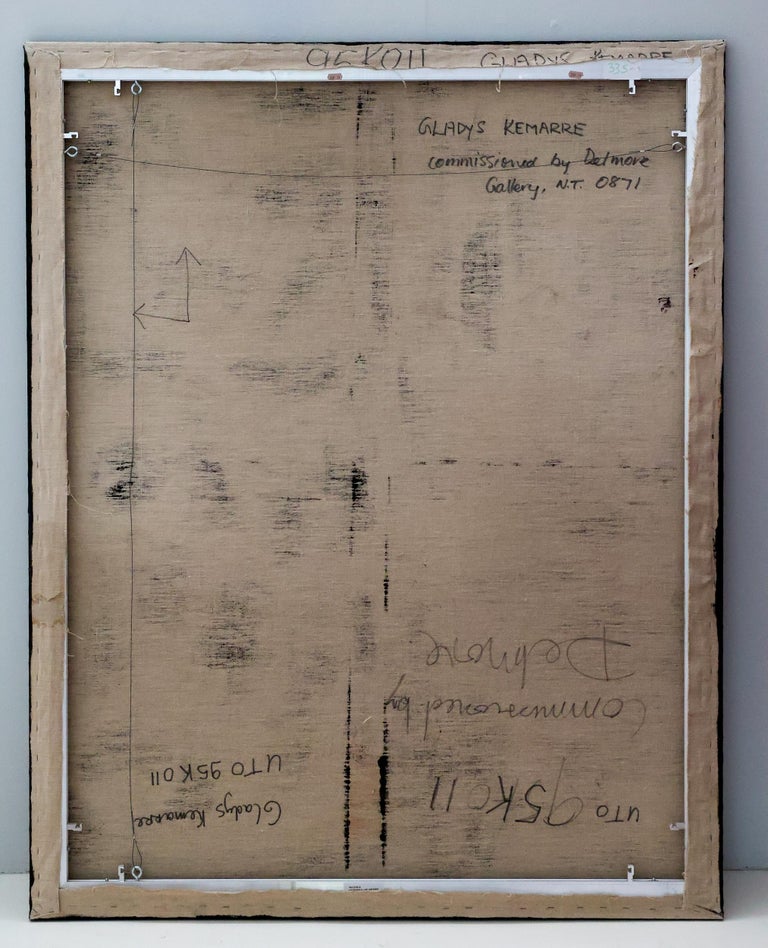 95K011 GLADYS KEMARRE
GLADYS KEMARRE
commissioned by Delmore
Gallery, N.T. 0871
Delmore
Commissioned by
UTO 95K011
UTO 95K011
Gladys Kemarre